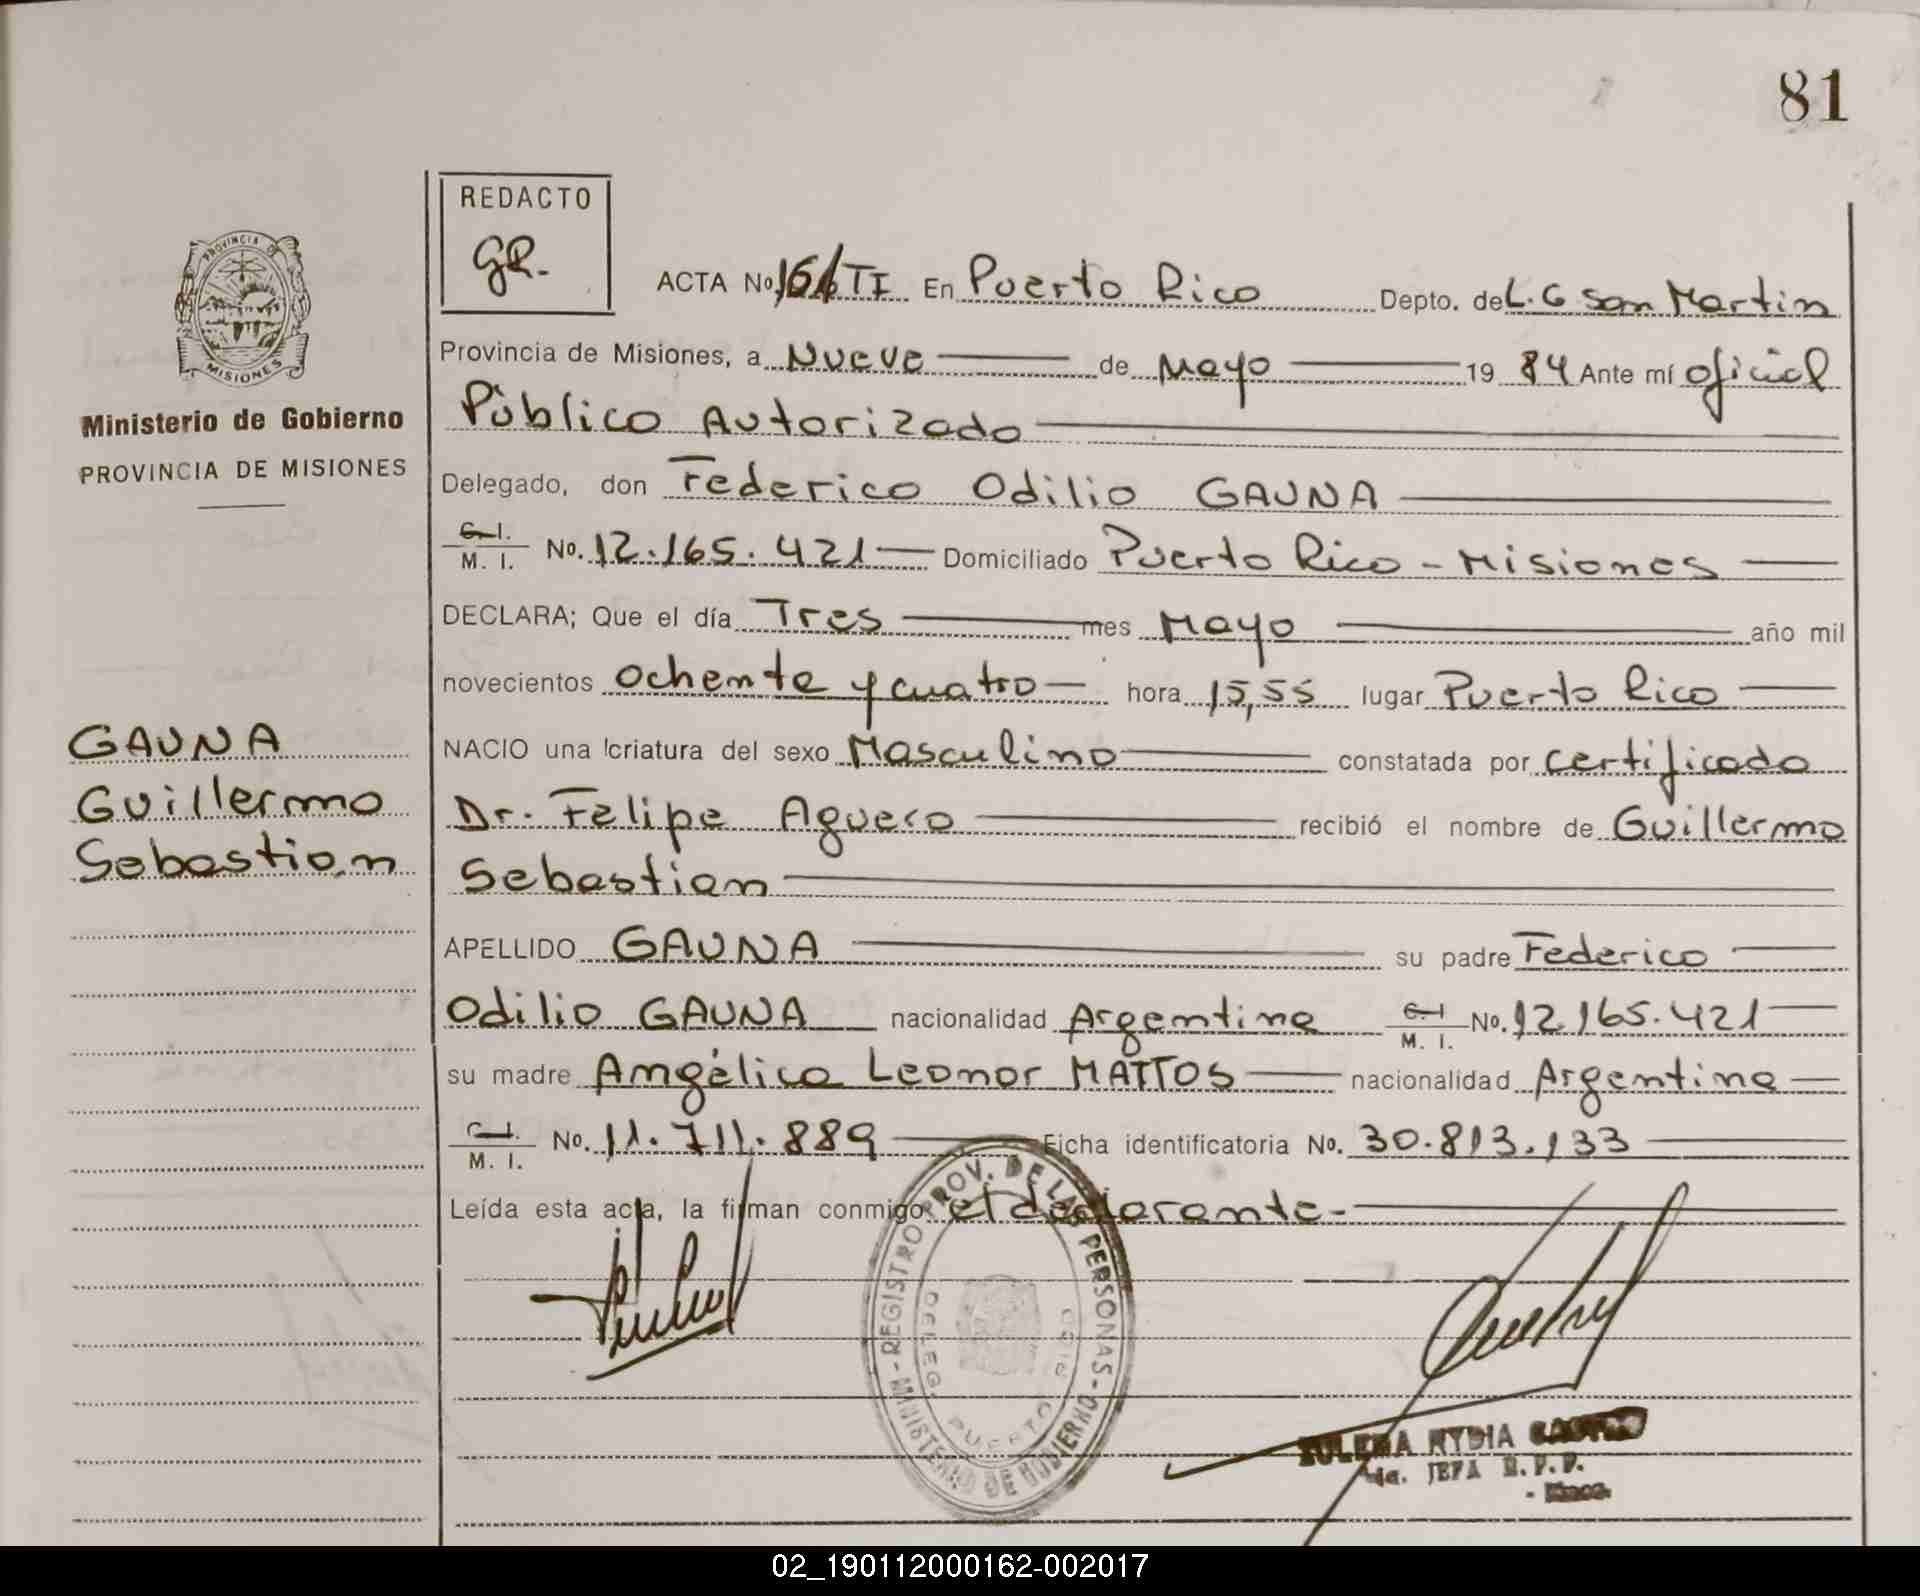 81
REDACTO
GR.
PROVINCIA DE
MISIONES
Ministerio de Gobierno
PROVINCIA DE MISIONES
GAUNA
Guillermo
Sebastian
ACTA No. TI En Puerto Rico Depto. de L. G San Martin
Provincia de Misiones, a Nueve de Mayo 19 84 Ante mí oficial
Pùblico Autorizado
Delegado, don Federico Odilio GAUNA
C. I.
M. I. No. 12.165.421 Domiciliado Puerto Rico - Misiones
DECLARA; Que el día Tres mes Mayo año mil
novecientos ochenta y cuatro hora 15,55 lugar Puerto Rico
NACIO una criatura del sexo Masculino constatada por certificado
Dr. Felipe Aguero recibió el nombre de Guillermo
Sebastian
APELLIDO GAUNA su padre Federico
Odilio GAUNA nacionalidad Argentina C. I
M. I. No. 12.165.421
su madre Angélica Leonor MATTOS nacionalidad Argentina
C. I.
M. I. No. 11.711.889 Ficha identificatoria No. 30.813.133
Leída esta acta, la firman conmigo el declarante.
REGISTRO PROV. DE LAS PERSONAS - MINISTERIO DE GOBIERNO -
DELEG. PUERTO RICO
NYDIA CASTRO
JEFA R.P.P.
02_190112000162-002017